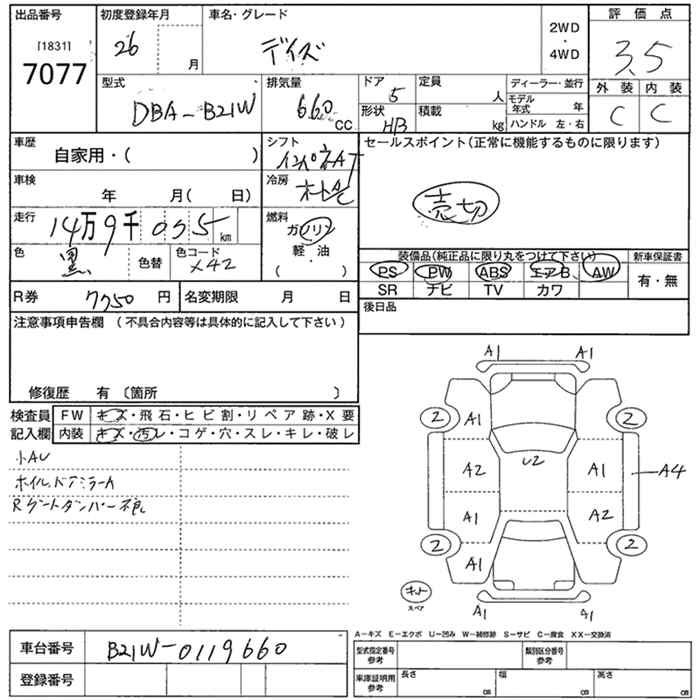 出品番号 初度登録年月 車名・グレード 評価点
[1831] 7077 26 月 デイズ 2WD・4WD 3.5
外装 内装
C C
型式 排気量 ドア 定員 ディーラー・並行
DBA-B21W 660cc 5 人 モデル年式 年
形状 積載
HB kg ハンドル 左・右
車歴 シフト セールスポイント(正常に機能するものに限ります)
自家用・( ) インパネAT
車検 冷房
年 月( 日) オートAC
売切
走行 燃料
14万9千035km ガソリン
軽・油
( )
色 色替 色コード
黒 X42
装備品(純正品に限り丸をつけて下さい) 新車保証書
PS PW ABS エアB AW 有・無
SR ナビ TV カワ
R券 7750円 名変期限 月 日 後日品
注意事項申告欄 (不具合内容等は具体的に記入して下さい)
修復歴 有〔箇所 〕
検査員 FW キズ・飛石・ヒビ割・リペア跡・X要
記入欄 内装 キズ・汚レ・コゲ・穴・スレ・キレ・破レ
小AU
ホイル、ドアミラーA
Rゲートダンパー不良
A1 A1
2 A1 2
A2 U2 A1 A4
A1 A2
2 A1 2
キット
スペア
A1 A1
A-キズ E-エクボ U-凹み W-補修跡 S-サビ C-腐食 XX-交換済
車台番号 B21W-0119660 型式指定番号 参考 類別区分番号 参考
登録番号 車庫証明用 参考 長さ cm 幅 cm 高さ cm